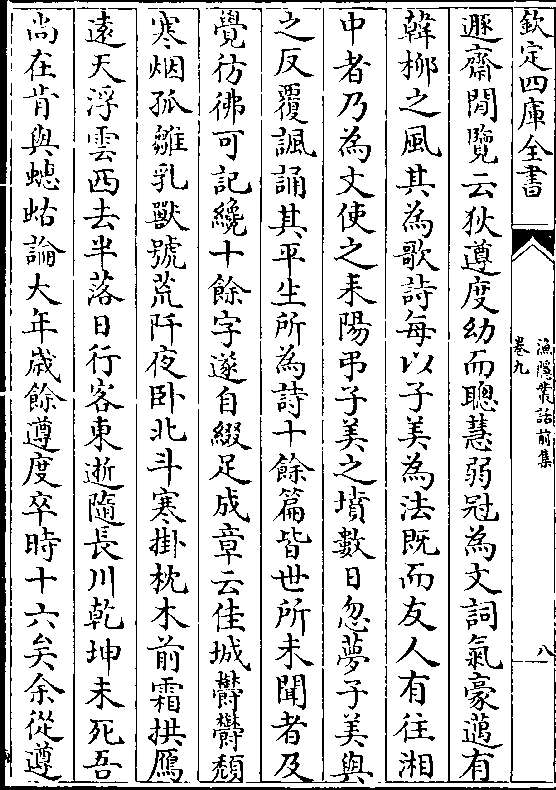 欽定四庫全書
漁隱叢話前集
卷九
八
遯齋閒覽云狄遵度幼而聰慧弱冠為文詞氣豪邁有
韓栁之風其為歌詩每以子美為法既而友人有往湘
中者乃為文使之耒陽弔子美之墳數日忽夢子美與
之反覆諷誦其平生所為詩十餘篇皆世所未聞者及
覺彷彿可記纔十餘字遂自綴足成章云佳城鬱鬱頹
寒烟孤雛乳獸號荒阡夜卧北斗寒掛枕木前霜拱鴈
遠天浮雲西去半落日行客東逝隨長川乾坤未死吾
尚在肯與蟪蛄論大年嵗餘遵度卒時十六矣余從遵